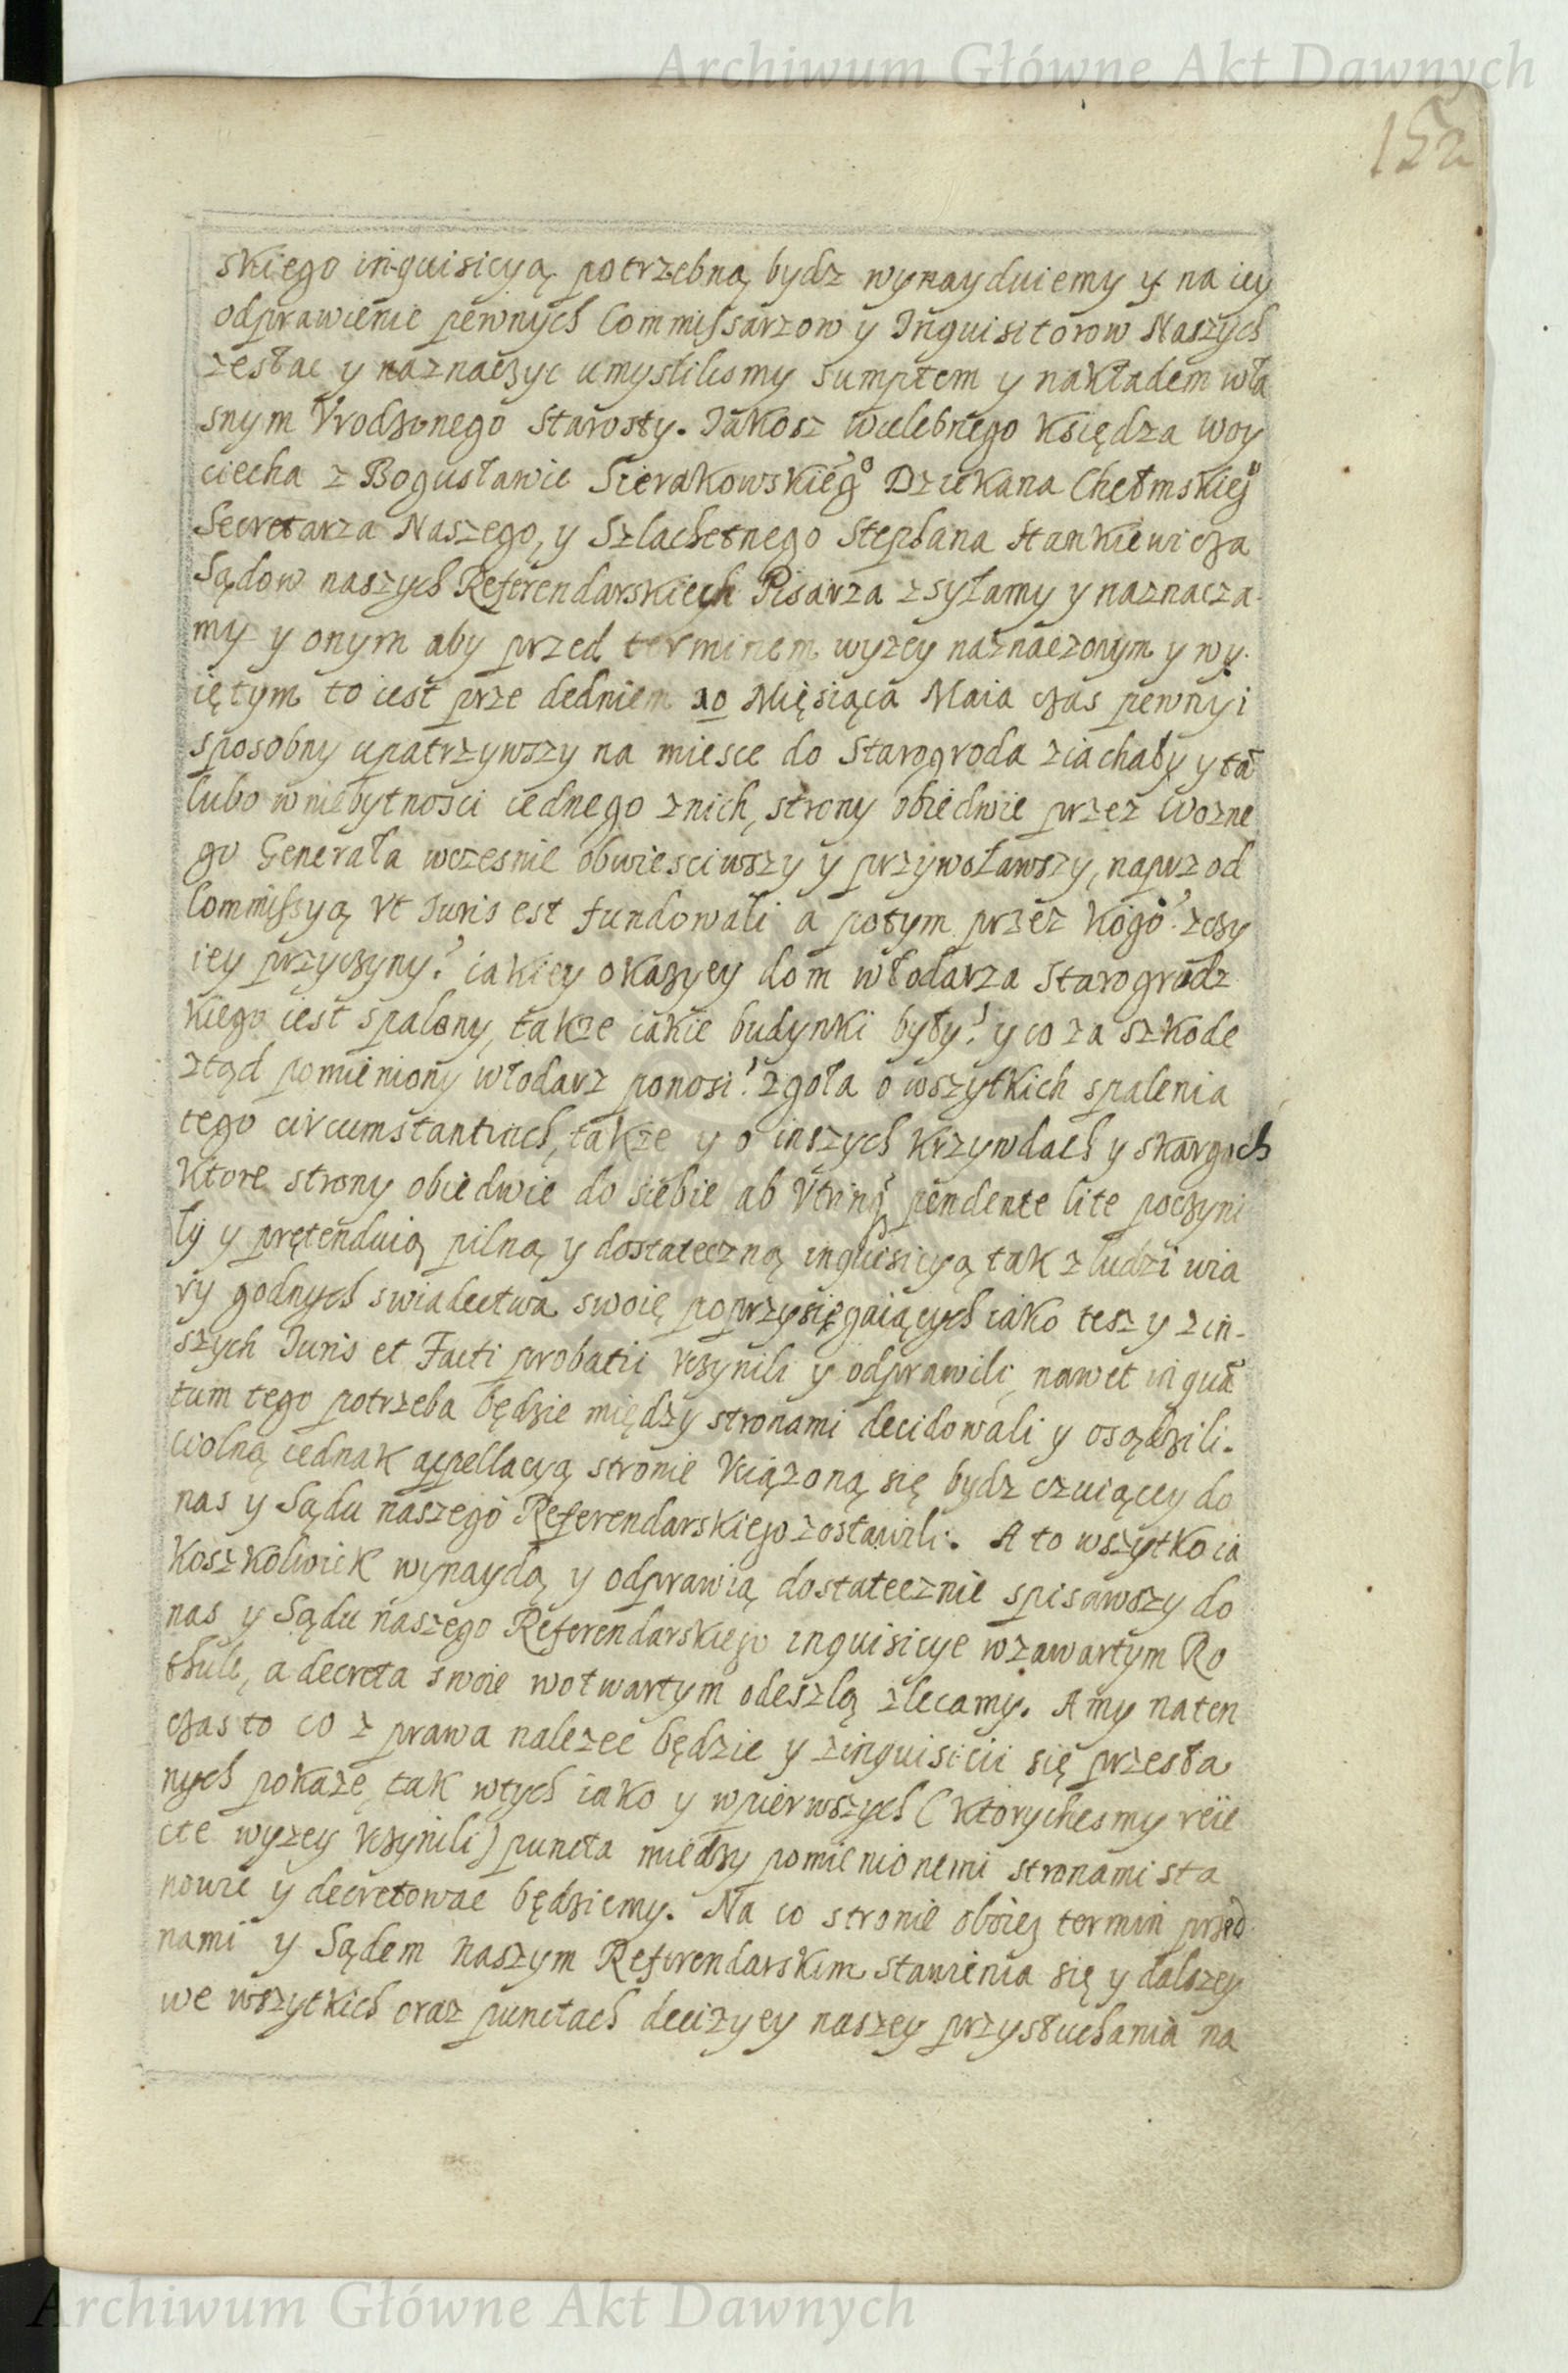 Archiwum Główne Akt Dawnych
152
skiego inquisicyą potrzebną bydz wynayduiemy y na iey
odprawienie pewnych Commissarzow y Inquisitorow Naszych
zesłac y naznaczyc umyslilismy sumptem y nakładem wła
snym Vrodzonego Starosty. Jakosz wielebnego Księdza Woy
ciecha z Bogusławic Sierakowskieg° Dziekana Chełmskieg°
Secretarza Naszego, y Szlachetnego Stephana Stankiewicza
Sądow naszych Referendarskiech Pisarza zsyłamy y naznacza-
my y onym aby przed terminem wyzey naznaczonym y wy-
iętym to iest prze dedniem 10 Mięsiąca Maia czas pewny i
sposobny upatrzywszy na miesce do Starogroda ziachały y tā
lubo w niebytnosci iednego znich, strony obiedwie przez Wozne
go Generała wczesnie obwiesciwszy y przywoławszy, naprzod
Commissyą Vt Iuris est fundowali a potym przez kogo? zczy
iey przyczyny? iakiey okazyey dom włodarza Starogrodz
kiego iest spalony, takze iakie budynki były? y co za szkode
ztąd pomieniony włodarz ponosi? zgoła o wszytkich spalenia
tego circumstantiach, takze y o inszych krzywdach y skargach
Ktore strony obiedwie do siebie ab Vtrinq pendente lite poczyni
ły y prętenduią pilną y dostateczną inquisicyą tak z ludzi wia
ry godnych swiadectwa swoię poprzysięgaiących iako tesz y z in-
szych Iuris et Facti probatii vczynili y odprawili, nawet in quā
tum tego potrzeba będzie między stronami decidowali y osądzili.
wolną iednak appellacyą stronie Vciązoną się bydz czuiącey do
nas y Sądu naszego Referendarskiego zostawili. A to wszytko ia
koszkolwiek wynaydą y odprawią dostatecznie spisawszy do
nas y Sądu naszego Referendarskiego inquisicye wzawartym Ro
thule, a decreta swoie wotwartym odeszlą zlecamy. A my naten
czas to co z prawa nalezec będzie y zinquisicii się przesła
nych pokaze, tak wtych iako y wpierwszych (ktorychesmy reie
cte wyzey vczynili) puncta miedzy pomienionemi stronami sta
nowic y decretowac będziemy. Na co stronie obóiey termin przed
nami y Sądem naszym Referendarskim stawienia się y dalszey
we wszytkich oraz punctach decizyey naszey przysłuchania na
Archiwum Główne Akt Dawnych